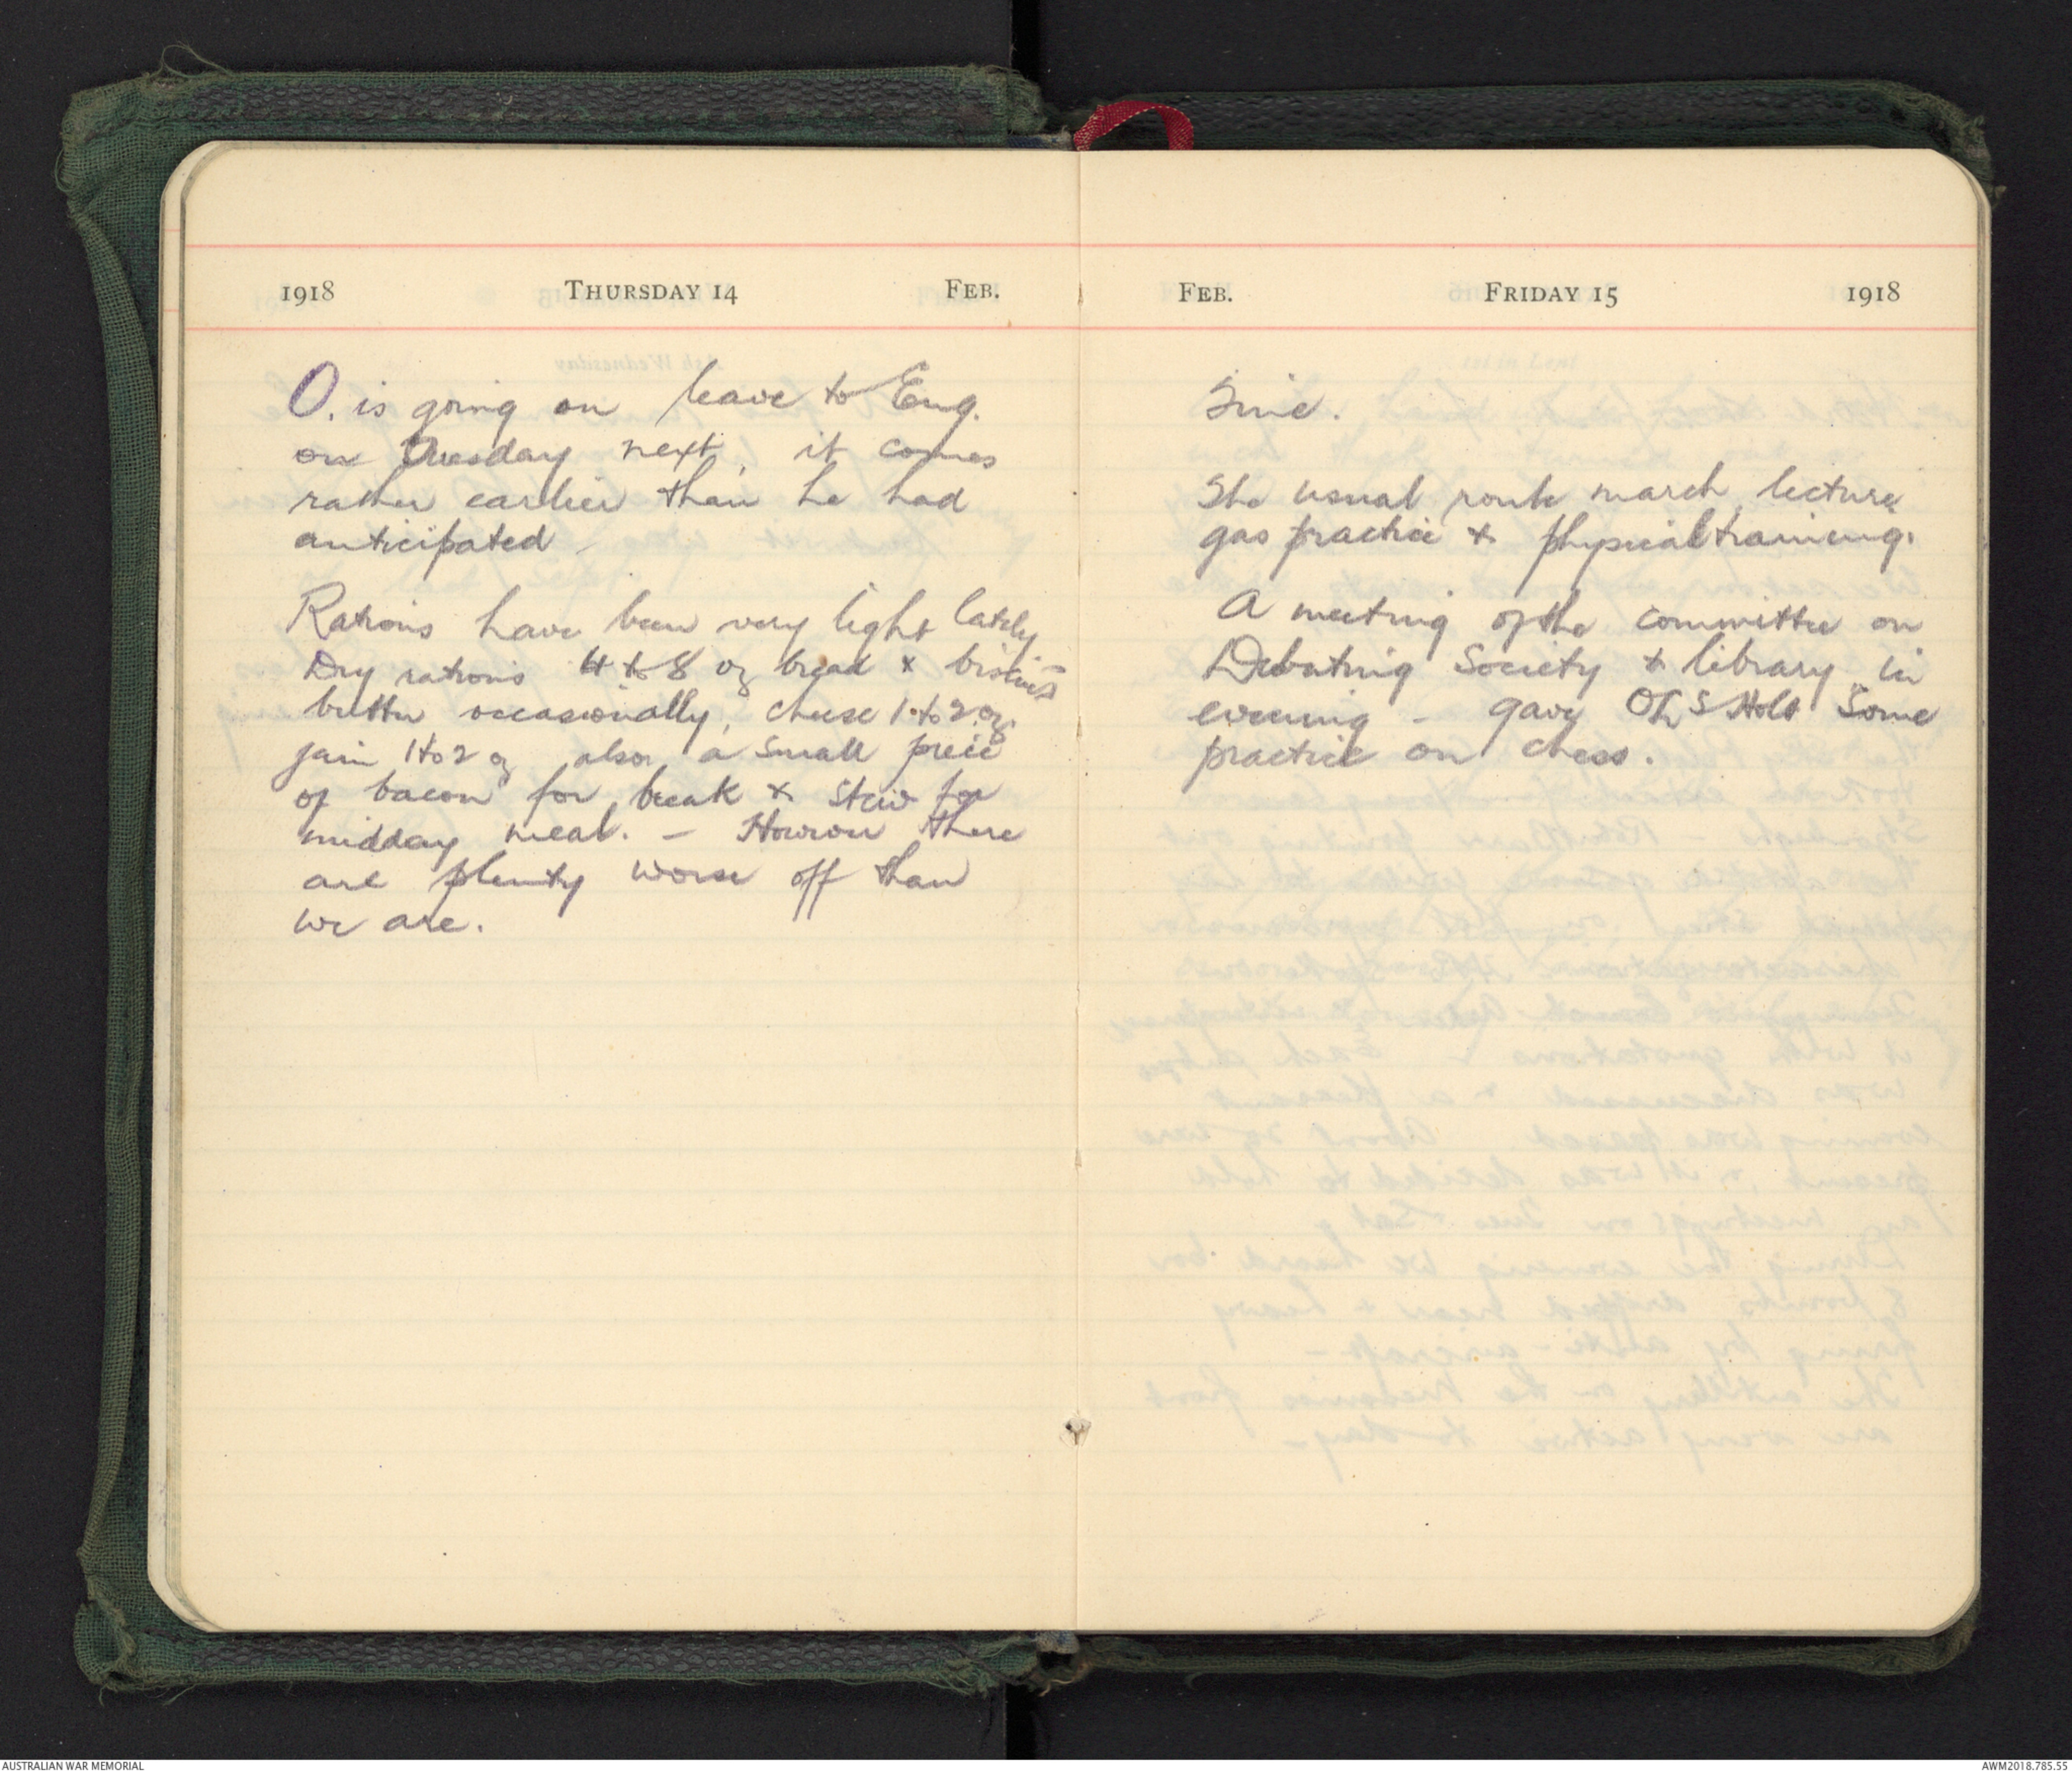 1918 THURSDAY 14 FEB.
O. is going on leave to Eng.
on Tuesday next, it comes
rather earlier than he had
anticipated -
Rations have been very light lately
Dry rations 4 to 8 oz bread & biscuits
butter occasionally, cheese 1 to 2 oz
jam 1 to 2 oz also a small piece
of bacon for break & stew for
midday meal. - However there
are plenty worse off than
we are.
FEB. FRIDAY 15 1918
Fine.
The usual route march, lecture,
gas practice & physical training.
A meeting of the committee on
Debating Society & library in
evening - gave Holt some
practice on chess.
AUSTRALIAN WAR MEMORIAL
AWM2018.785.55